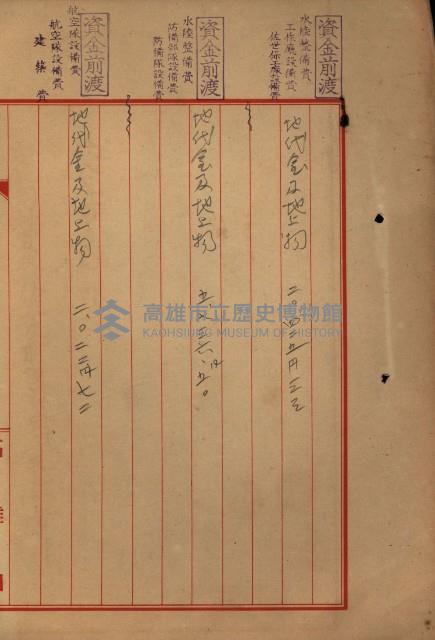 資金前渡
水陸整備費
工作廳設備費
佐世保工廠設備費
地代金及地上物
二〇四三五円三三
資金前渡
水陸整備費
防備部隊設備費
防備隊設備費
地代金及地上物
五、〇三六円五〇
資金前渡
航空隊設備費
航空隊設備費
建築費
地代金及地上物
二、〇二二円七二
高雄市立歷史博物館
KAOHSIUNG MUSEUM OF HISTORY